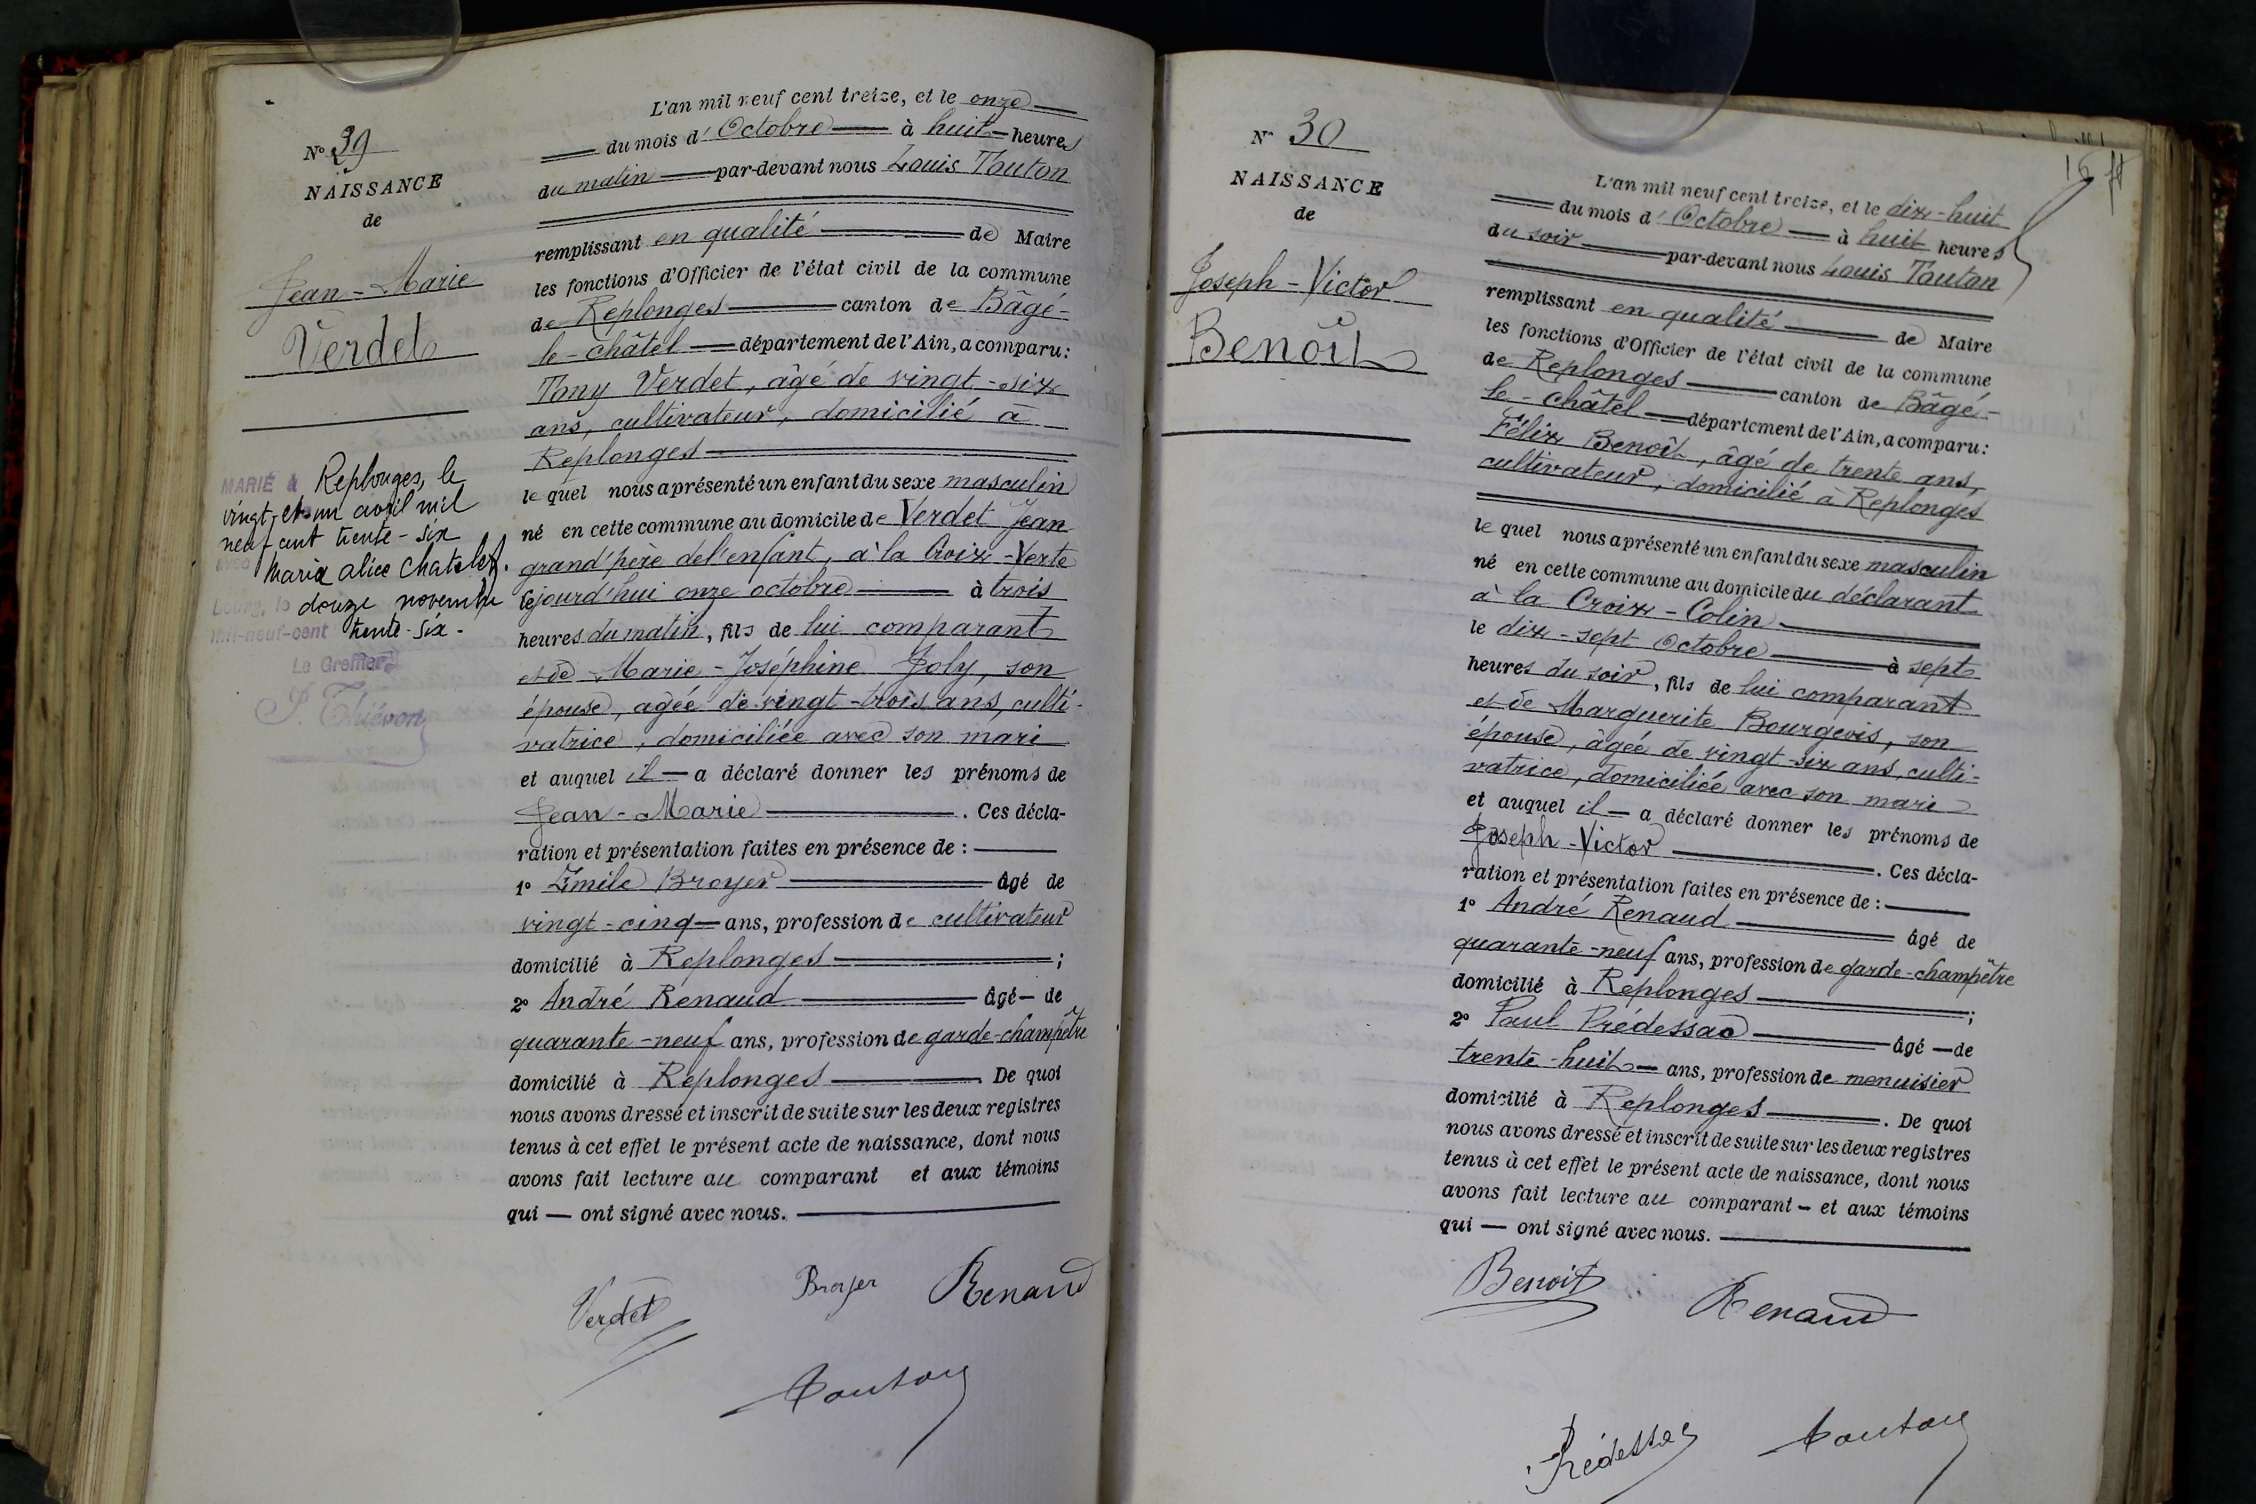 N° 39
NAISSANCE
de
Jean-Marie
Verdet
MARIÉ à Replonges, le
vingt-et-un avril mil
neuf cent trente-six
avec Maria Alice Chatelet.
Bourg, le douze novembre
mil-neuf-cent trente-six.
Le Greffier
J. Thiévon
L'an mil neuf cent treize, et le onze
du mois d'Octobre à huit heures
du matin par-devant nous Louis Touton
remplissant en qualité de Maire
les fonctions d'Officier de l'état civil de la commune
de Replonges canton de Bâgé-
le-châtel département de l'Ain, a comparu:
Tony Verdet, âgé de vingt-six
ans, cultivateur, domicilié à
Replonges
le quel nous a présenté un enfant du sexe masculin
né en cette commune au domicile de Verdet Jean
grand'père de l'enfant, à la Croix-Verte
cejourd'hui onze octobre à trois
heures du matin, fils de lui comparant
et de Marie-Joséphine Joly, son
épouse, agée de vingt-trois ans, culti-
vatrice, domiciliée avec son mari
et auquel il a déclaré donner les prénoms de
Jean-Marie. Ces décla-
ration et présentation faites en présence de :
1° Emile Broyer âgé de
vingt-cinq ans, profession de cultivateur
domicilié à Replonges ;
2° André Renaud âgé de
quarante-neuf ans, profession de garde-champêtre
domicilié à Replonges. De quoi
nous avons dressé et inscrit de suite sur les deux registres
tenus à cet effet le présent acte de naissance, dont nous
avons fait lecture au comparant et aux témoins
qui — ont signé avec nous.
Verdet Broyer Renaud
Touton
N° 30
NAISSANCE
de
Joseph-Victor
Benoît
16
L'an mil neuf cent treize, et le dix-huit
du mois d'Octobre à huit heures
du soir par-devant nous Louis Touton
remplissant en qualité de Maire
les fonctions d'Officier de l'état civil de la commune
de Replonges canton de Bâgé-
le-châtel département de l'Ain, a comparu:
Félix Benoît, âgé de trente ans,
cultivateur, domicilié à Replonges
le quel nous a présenté un enfant du sexe masculin
né en cette commune au domicile du déclarant
à la Croix-Colin
le dix-sept Octobre à sept
heures du soir, fils de lui comparant
et de Marguerite Bourgeois, son
épouse, âgée de vingt-six ans, culti-
vatrice, domiciliée avec son mari
et auquel il a déclaré donner les prénoms de
Joseph-Victor. Ces décla-
ration et présentation faites en présence de :
1° André Renaud âgé de
quarante-neuf ans, profession de garde-champêtre
domicilié à Replonges ;
2° Paul Prédessac âgé de
trente-huit ans, profession de menuisier
domicilié à Replonges. De quoi
nous avons dressé et inscrit de suite sur les deux registres
tenus à cet effet le présent acte de naissance, dont nous
avons fait lecture au comparant — et aux témoins
qui — ont signé avec nous.
Benoit Renaud
Prédessac Touton